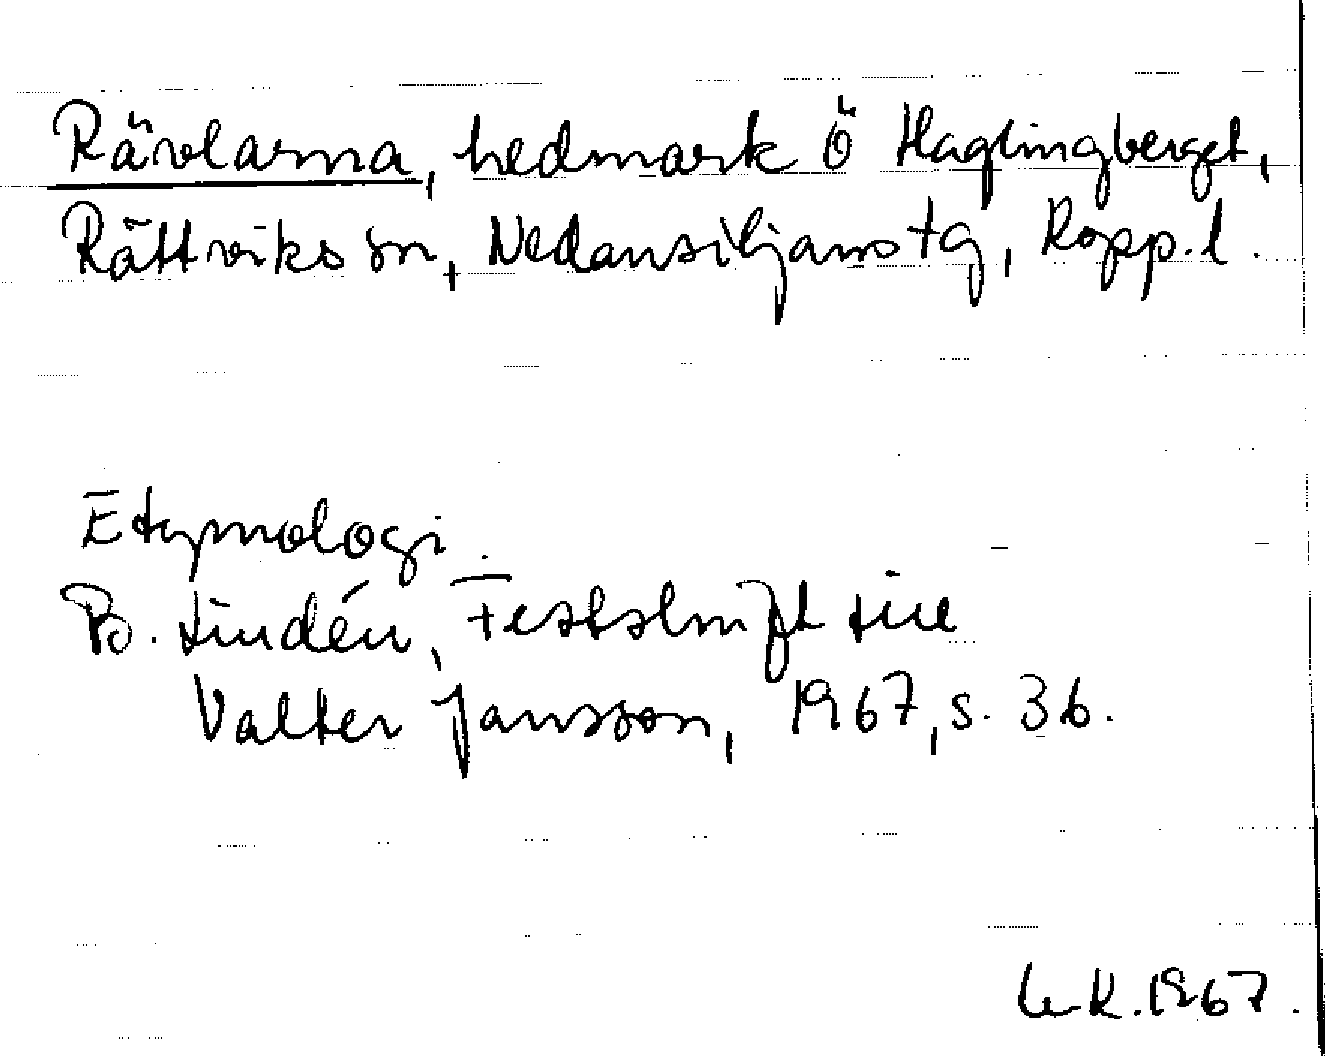 Rävlarna, hedmark Ö Haglingberget,
Rättviks sn, Nedansiljans tg, Kopp. l.
Etymologi.
B. Lindén, Festskrift till
Valter Jansson, 1967, s. 36.
K. 1967.